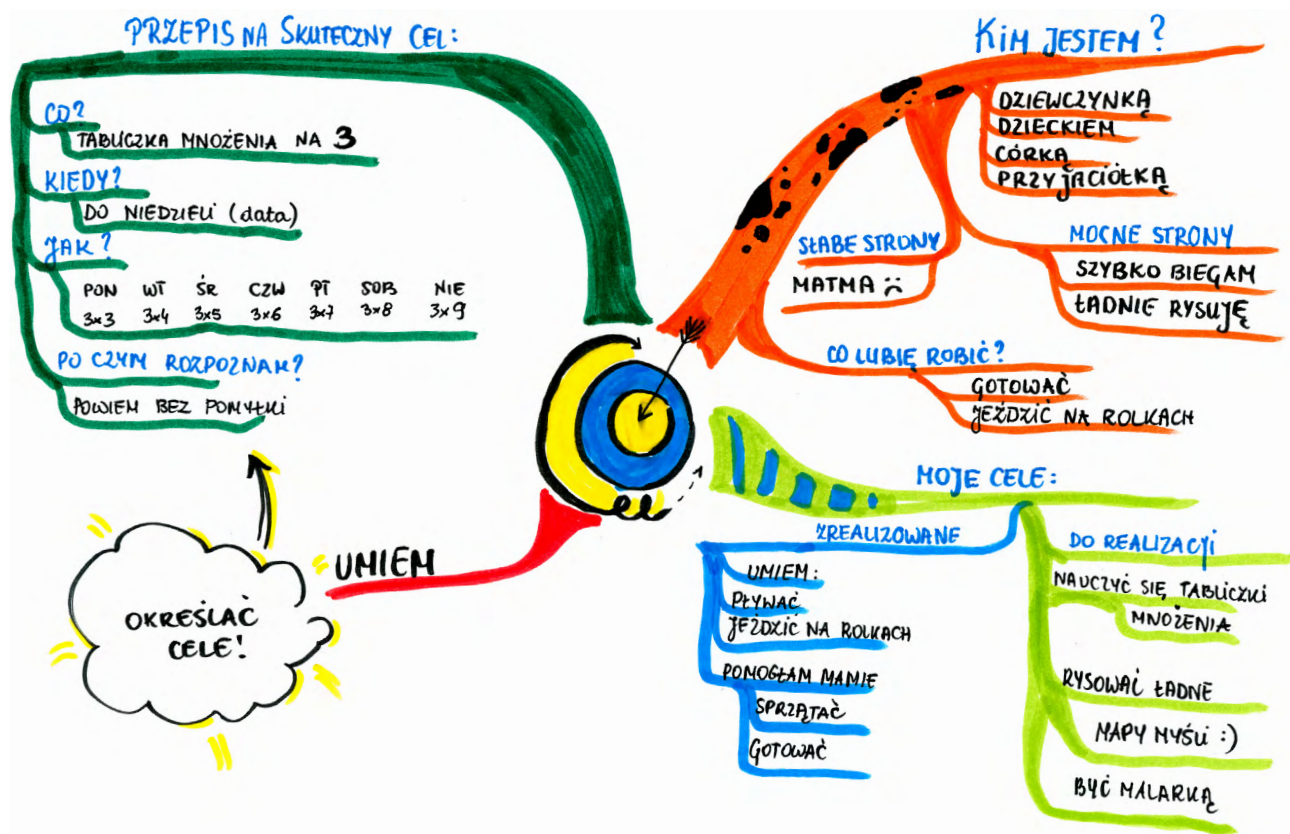 PRZEPIS NA SKUTECZNY CEL:
CO?
TABLICZKA MNOŻENIA NA 3
KIEDY?
DO NIEDZIELI (data)
JAK?
PON WT ŚR CZW PT SOB NIE
3x3 3x4 3x5 3x6 3x7 3x8 3x9
PO CZYM ROZPOZNAM?
POWIEM BEZ POMYŁKI
KIM JESTEM?
DZIEWCZYNKĄ
DZIECKIEM
CÓRKĄ
PRZYJACIÓŁKĄ
SŁABE STRONY
MATMA :(
MOCNE STRONY
SZYBKO BIEGAM
ŁADNIE RYSUJĘ
CO LUBIĘ ROBIĆ?
GOTOWAĆ
JEŹDZIĆ NA ROLKACH
MOJE CELE:
ZREALIZOWANE
UMIEM:
PŁYWAĆ
JEŹDZIĆ NA ROLKACH
POMOGŁAM MAMIE
SPRZĄTAĆ
GOTOWAĆ
DO REALIZACJI
NAUCZYĆ SIĘ TABLICZKI
MNOŻENIA
RYSOWAĆ ŁADNE
MAPY MYŚLI :)
BYĆ MALARKĄ
UMIEM
OKREŚLAĆ
CELE!